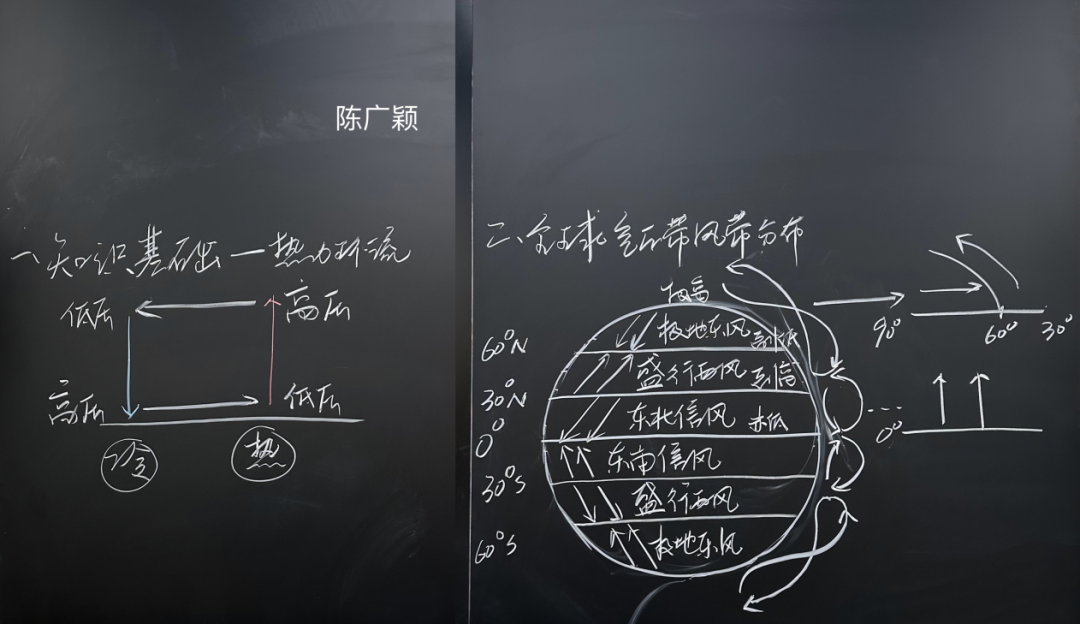 陈广颖
一、知识基础—热力环流
低压
高压
高压
低压
冷
热
二、全球气压带风带分布
极高
60°N
极地东风
副低
盛行西风
副高
30°N
东北信风
赤低
0°
东南信风
30°S
盛行西风
60°S
极地东风
90°
60°
30°
0°